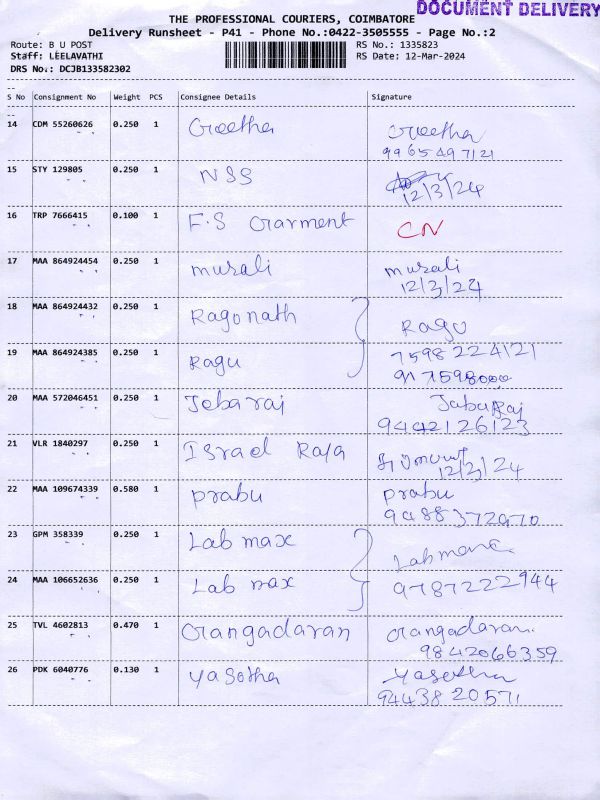 DOCUMENT DELIVERY
THE PROFESSIONAL COURIERS, COIMBATORE
Delivery Runsheet - P41 - Phone No.:0422-3505555 - Page No.:2
Route: B U POST
RS No.: 1335823
Staff: LEELAVATHI
RS Date: 12-Mar-2024
DRS No.: DCJB133582302
S No Consignment No Weight PCS Consignee Details Signature
14 CDM 55260626 0.250 1 Greetha Greetha
9965497121
15 STY 129805 0.250 1 NSS
12/3/24
16 TRP 7666415 0.100 1 F.S Garment CN
17 MAA 864924454 0.250 1 murali murali
12/3/24
18 MAA 864924432 0.250 1 Ragonath Ragu
19 MAA 864924385 0.250 1 Ragu 7598224121
20 MAA 572046451 0.250 1 Jebaraj JabaRaj
9442126123
21 VLR 1840297 0.250 1 Israel Raja
12/3/24
22 MAA 109674339 0.580 1 prabu prabu
9488372970
23 GPM 358339 0.250 1 Lab max
24 MAA 106652636 0.250 1 Lab max 9787222944
25 TVL 4602813 0.470 1 Grangadaran Grangadaran
9842066359
26 PDK 6040776 0.130 1 yasotha yasotha
9443820571